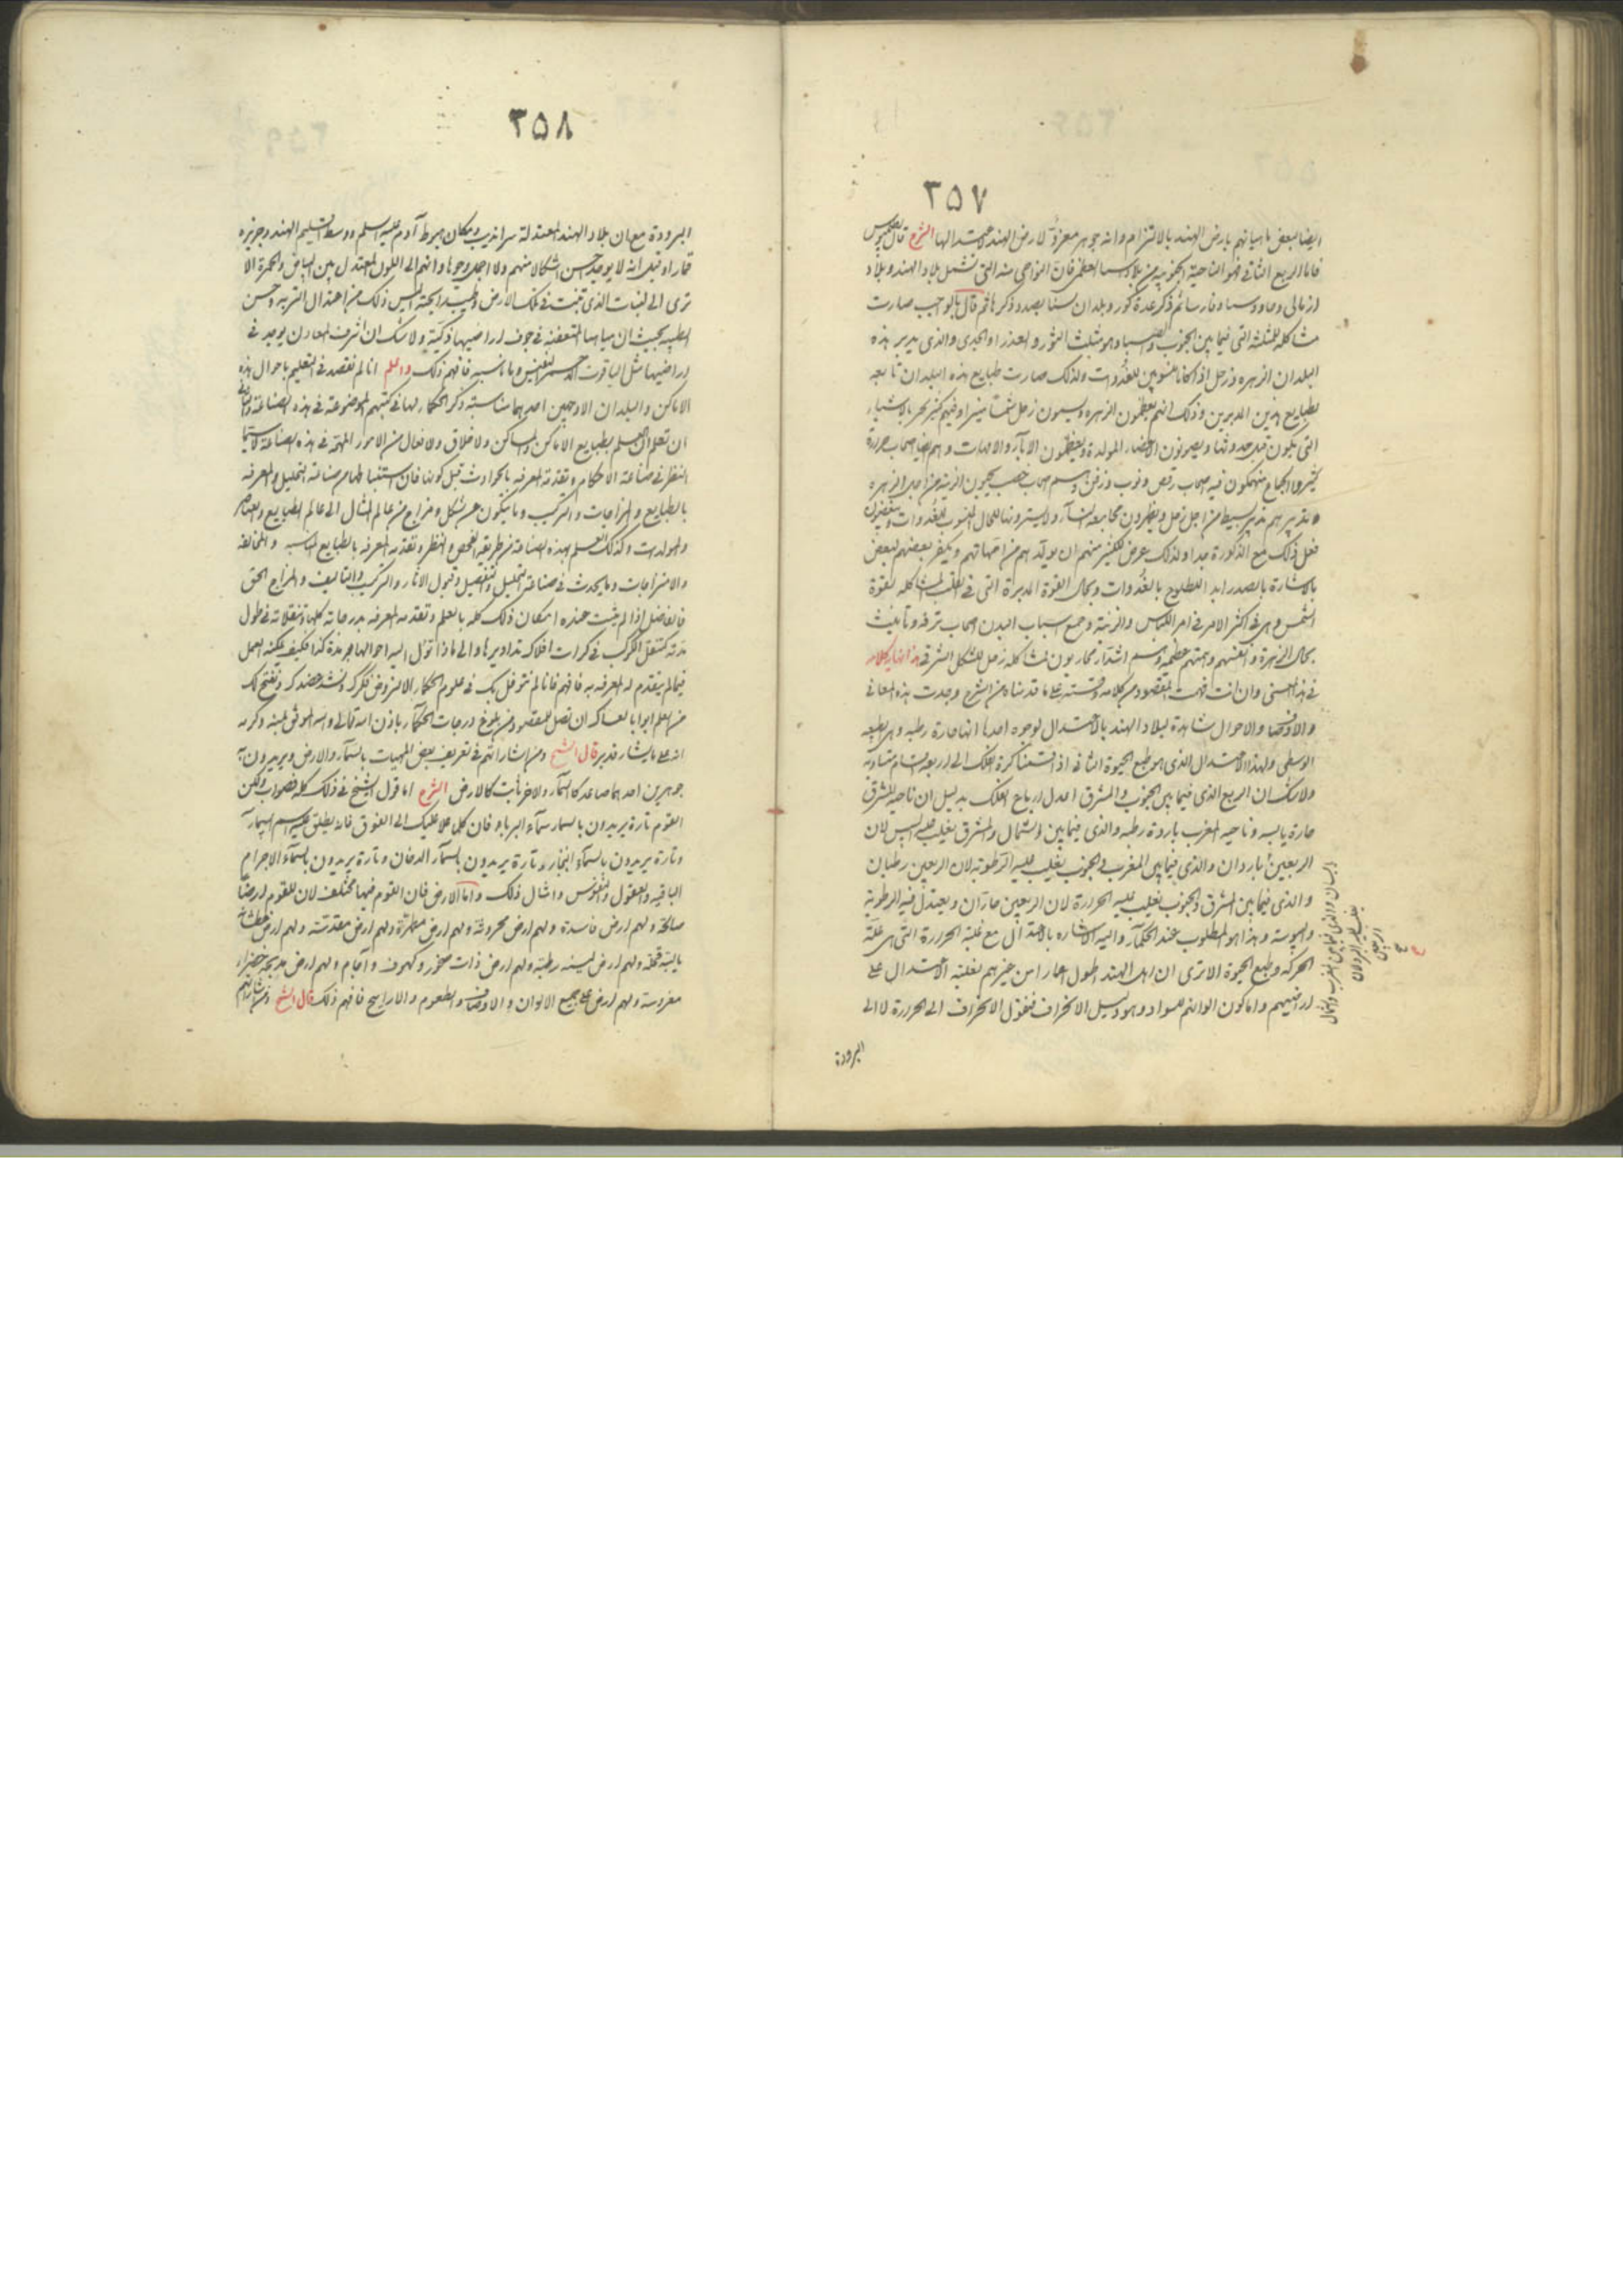 ٣٥٧
ايضا بعض بارض الهند بالالتزام وانه جوهر لارض الهند الشرح قال بطلميوس
فاما الربع الثاني فهو الناحية الجنوبية من بلاد اسيا العظمى فان النواحي منه التي تشمل بلاد الهند وبلاد
وفارس ثم ذكر عدة كور وبلدان بصدد ذكرها ثم قال صارت
مشاكلة للمثلثة التي فيما بين الجنوب والصبا وهو مثلث الثور والعذراء والجدي والذي يدبر هذه
البلدان الزهرة وزحل اذا كانا ولذلك صارت طبايع هذه البلدان تابعه
لطبايع هذين المدبرين وذلك انهم يعظمون الزهرة ويسمون زحل وفيهم كثير بالاشياء
التي تكون قبل حدوثها ويصونون الاعضاء المولدة ويعظمون الآباء والامهات وهم اصحاب حرارة
كثيرو الجماع منهمكون فيه اصحاب رقص
من اجل زحل مجامعة النساء
فعل ذلك مع الذكورة جدا ولذلك عرض لكثير منهم ان يولد لهم من امهاتهم ويكفر بعضهم لبعض
بالاشارة بالصدر القوة المدبرة التي في القلب المشاكلة لقوة
الشمس وهي في اكثر الامر في امر اللباس والزينة وجميع اسباب البدن اصحاب ترفه وتأنيث
بحال الزهرة وانفسهم وهمتهم عظيمة وهم اشداء محاربون لمشاكلة زحل للشكل الشرقي كلامه
في هذا المعنى وان انت فهمت المقصود من كلامه ما قدمناه من الشرح وجدت هذه المعاني
والاوصاف والاحوال شاهدة لبلاد الهند بالاعتدال لوجوه احدها انها حارة رطبه وهي
الوسطى ولهذا الاعتدال الذي هو طبع الحيوة الثاني اذا قسمنا كرة الفلك الى اربعة اقسام متساوية
ولا شك ان الربع الذي فيما بين الجنوب والمشرق اعدل ارباع الفلك بدليل ان ناحية المشرق
حارة يابسه وناحيه المغرب باردة رطبه والذي فيما بين الشمال والمشرق يغلب عليه اليبس لان
الربعين باردان والذي فيما بين المغرب والجنوب يغلب عليه الرطوبة لان الربعين رطبان
والذي فيما بين المشرق والجنوب يغلب عليه الحرارة لان الربعين حاران ويعتدل فيه الرطوبة
واليبوسة وهذا هو المطلوب عند الحكماء واليه الاشارة بالاعتدال مع غلبة الحرارة التي هي علة
الحركة وطبع الحيوة الا ترى ان اهل الهند اطول اعمارا من غيرهم لغلبة الاعتدال على
اراضيهم واما كون الوانهم للسواد وهو دليل الانحراف فنقول الانحراف الى الحرارة لا الى
يابسان والذي فيما بين المغرب والشمال
يغلب عليه البرد لان
الربعين
البرودة
٣٥٨
البرودة مع ان بلاد الهند المعتدلة سرانديب ومكان هبوط آدم عليه السلم ووسط اقليم الهند وجزيره
قمار وقيل انه لا يوجد احسن اشكالا منهم ولا اجمل وجوها وانهم الى اللون المعتدل بين البياض والحمرة الا
ترى الى النبات الذي تنبت في تلك الارض وطيب رايحته اليس ذلك من اعتدال التربه وحسن
الطبيعة بحيث ان مياهها المتعفنة في جوف اراضيها ذكية ولا شك ان اشرف المعادن يوجد في
اراضيها مثل الياقوت النفيس وما ناسبه فافهم ذلك واعلم انا لم نقصد في التعليم باحوال هذه
الاماكن والبلدان الا لوجهين احدهما مناسبة ذكر الحكماء لها في كتبهم الموضوعة في هذه الصناعة والثاني
ان تعلم ان العلم بطبايع الاماكن والمساكن والاخلاق والافعال من الامور المهمة في هذه الصناعة لا سيما
النظر في صناعة الاحكام وتقدمة المعرفه بالحوادث قبل كونها فان استنباطها من صناعة التحليل والمعرفه
بالطبايع والمزاجات والتركيب وما يتكون عن شكل ومزاج من عالم المثال الى عالم الطبايع والعناصر
والمولدات وكذلك العلم بهذه الصناعة من طريقه الفحص والنظر وتقدمه المعرفه بالطبايع المناسبه والمخالفه
والامتزاجات وما يحدث في صناعة التحليل والتفصيل وقبول الآثار والتركيب والتاليف والمزاج الحق
فالفاضل اذا لم يثبت عنده امكان ذلك كله بالعلم وتقدمه المعرفه بدرجاته كلها وتنقلاته في طول
مدته كتنقل الكوكب في كرات افلاكه تداويرها والى ماذا تؤل اليه احوالها في مدة كذا فكيف يمكنه العمل
فيما لم يتقدم له المعرفه به فافهم فانا لم نتوغل بك في علوم الحكماء الا لنروض فكرك ونشد عضدك ونفتح لك
من العلم ابوابا لعساك ان تصل للمقصود من بلوغ درجات الحكماء باذن الله تعالى والله الموفق بمنه وكرمه
انه على ما يشاء قدير قال الشيخ ومن اشاراتهم في تعريف بعض المهيات بالسماء والارض ويريدون به
جوهرين احدهما صاعد كالسماء والاخر ثابت كالارض الشرح اما قول الشيخ في ذلك كله فصواب ولكن
القوم تارة يريدون بالسماء سماء البرباو فان كل ما علا عليك الى الفوق فانه يطلق عليه اسم السماء
وتارة يريدون بالسماء البخار وتارة يريدون بالسماء الدخان وتارة يريدون بالسماء الاجرام
الباقيه والعقول والنفوس وامثال ذلك واما الارض فان القوم فيها مختلف لان للقوم ارضا
صالحة ولهم ارض فاسدة ولهم ارض محروثة ولهم ارض مطهرة ولهم ارض مقدسة ولهم ارض عطشانة
يابسة قحلة ولهم ارض لينه رطبة ولهم ارض ذات صخور وكهوف وآجام ولهم ارض مدبجة خضراء
مغروسة ولهم ارض على جميع الالوان والاوصاف والطعوم والاراييح فافهم ذلك قال الشيخ ومن اشاراتهم